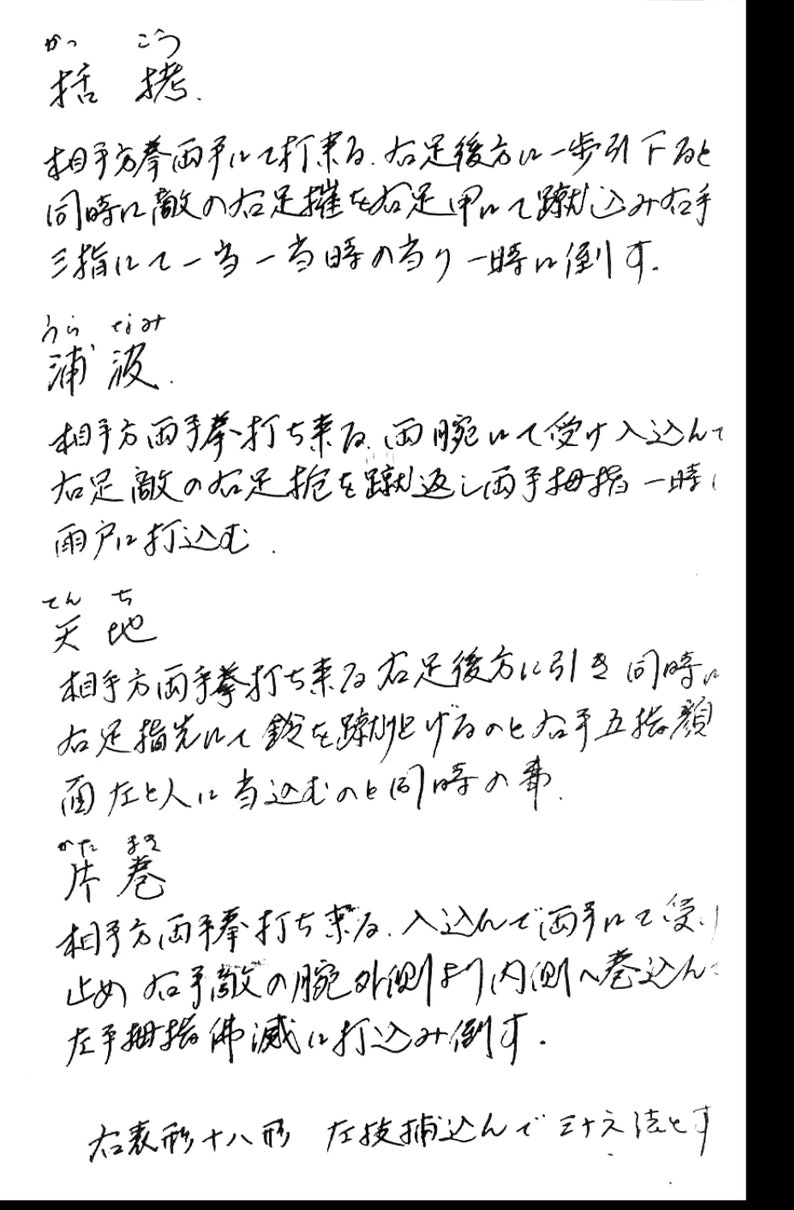 かっ こつ
括 拷.
相手方拳両手にて打来る.右足後方に一歩引下ると
同時に敵の右足摧を右足甲にて蹴込み右手
三指にて一当一当時の当り一時に倒す.
うら なみ
浦 波.
相手方両手拳打ち来る.両腕にて受け入込んで
右足敵の右足捨を蹴返し両手拇指一時に
雨戸に打込む.
てん ち
天 地
相手方両手拳打ち来る右足後方に引き同時に
右足指先にて鈴を蹴り上げるのと右手五指顔
面左と人に当込むのと同時の事.
かた まき
片 巻
相手方両手拳打ち来る.入込んで両手にて受け
止め右手敵の腕外側より内側へ巻込んで
左手拇指佛滅に打込み倒す.
右表形十八形 左技捕込んで三十六法とす